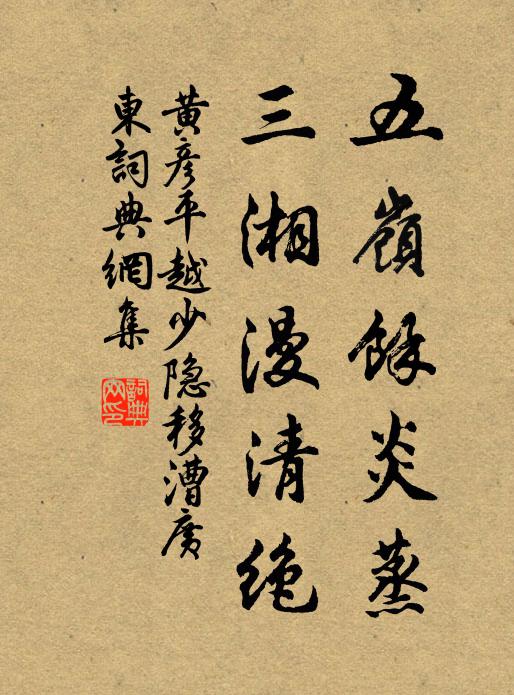 五嶺餘炎蒸
三湘漫清绝
黄彦平越少隐移漕廣
東詞典網集
詞典
网印